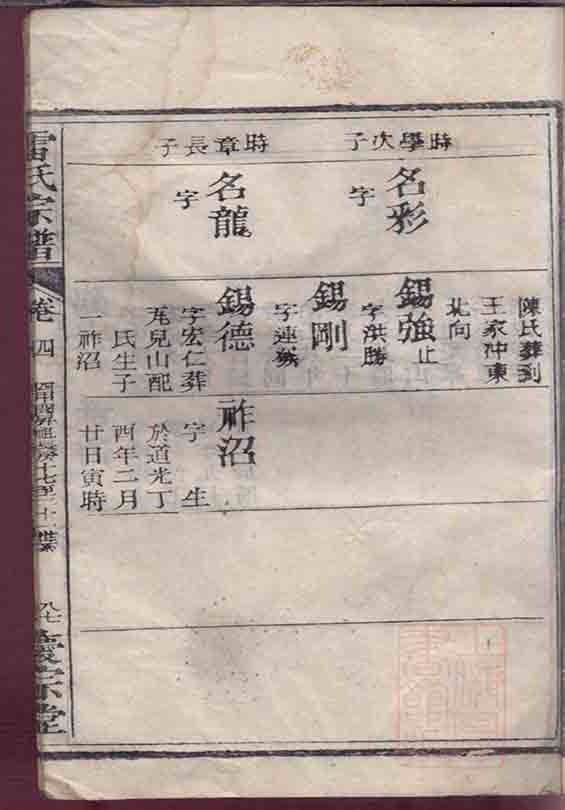 時學次子
時章長子
名彩
字
名龍
字
陳氏葬到
王家冲東
北向
錫強
止
字洪勝
錫剛
字連
錫德
字宏仁葬
兎兒山配
氏生子
一祚沼
祚沼
字 生
於道光丁
酉年二月
廿日寅時
雷氏宗譜
卷四
八七
慶宗堂